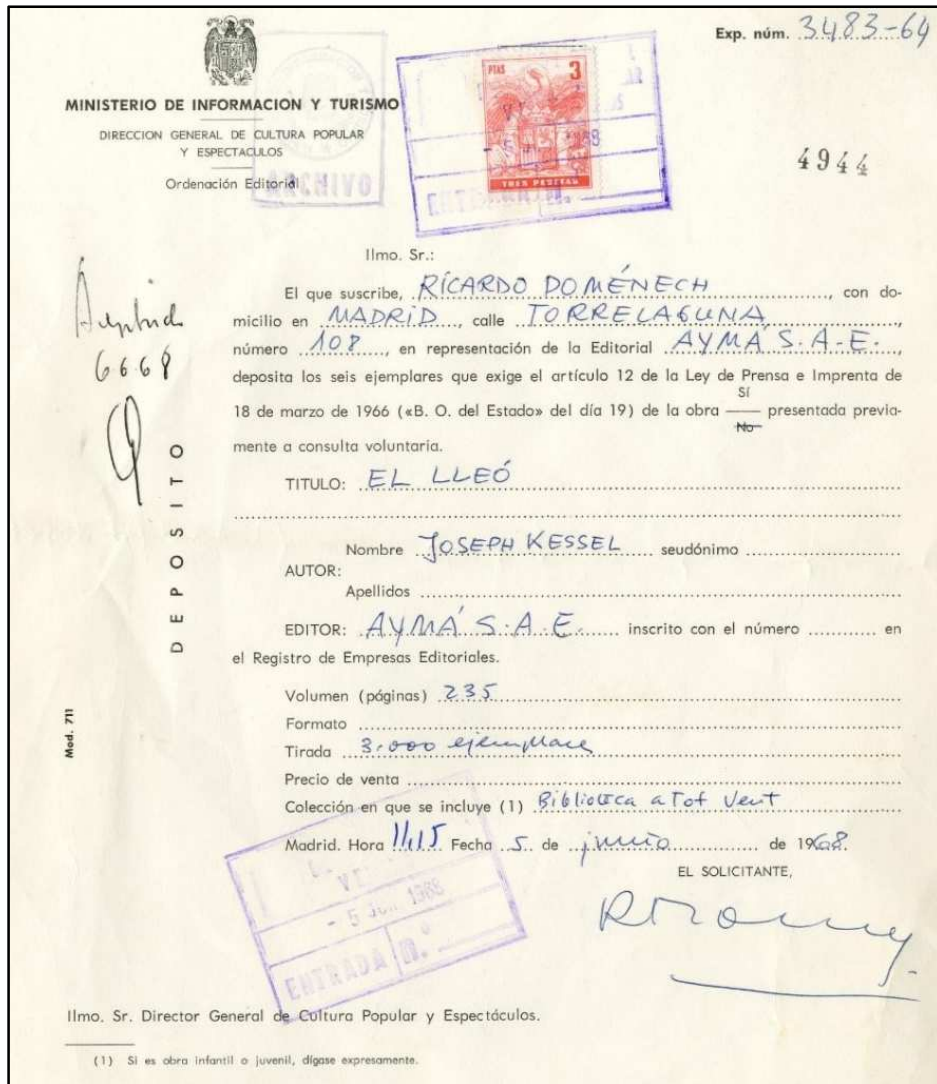 Exp. núm. 3483-64
MINISTERIO DE INFORMACION Y TURISMO
DIRECCION GENERAL DE CULTURA POPULAR
Y ESPECTACULOS
Ordenación Editorial
ARCHIVO
PTAS 3
TRES PESETAS
ENTRADA N.º
4944
Ilmo. Sr.:
El que suscribe, RICARDO DOMÉNECH, con do-
micilio en MADRID, calle TORRELAGUNA,
número 108, en representación de la Editorial AYMÁ S.A.E.,
deposita los seis ejemplares que exige el artículo 12 de la Ley de Prensa e Imprenta de
Sí
18 de marzo de 1966 («B. O. del Estado» del día 19) de la obra presentada previa-
No
mente a consulta voluntaria.
6-6-68
DEPOSITO
TITULO: EL LLEÓ
Nombre JOSEPH KESSEL seudónimo
AUTOR:
Apellidos
EDITOR: AYMÁ S.A.E. inscrito con el número en
el Registro de Empresas Editoriales.
Volumen (páginas) 235
Formato
Tirada 3.000 ejemplares
Precio de venta
Colección en que se incluye (1) Biblioteca a Tot Vent
Madrid. Hora 11,15 Fecha 5 de junio de 1968.
EL SOLICITANTE,
Mod. 711
- 5 JUN 1968
ENTRADA N.º
Ilmo. Sr. Director General de Cultura Popular y Espectáculos.
(1) Si es obra infantil o juvenil, dígase expresamente.